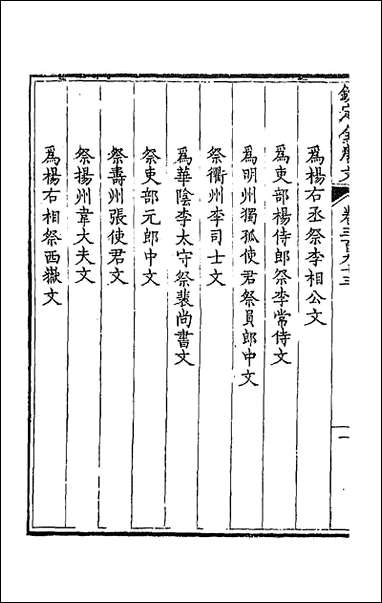 欽定全唐文
卷三百九十三
一
爲楊右丞祭李相公文
爲吏部楊侍郎祭李常侍文
爲明州獨孤使君祭員郎中文
祭衢州李司士文
爲華陰李太守祭裴尚書文
祭吏部元郎中文
祭壽州張使君文
祭揚州韋大夫文
爲楊右相祭西嶽文